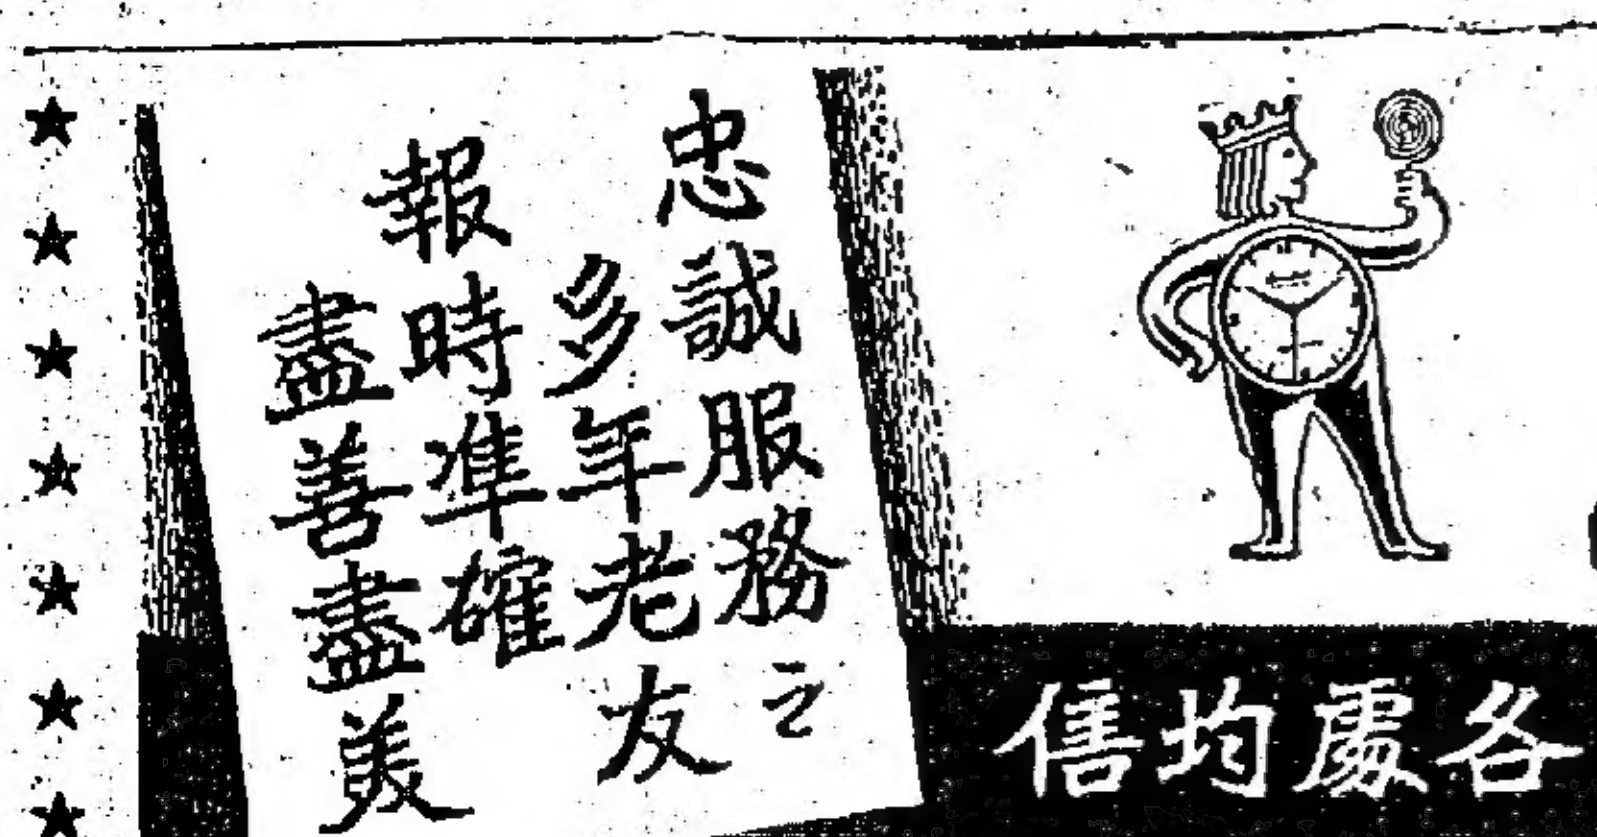 忠誠服務之
多年老友
報時準確
盡善盡美
各處均售